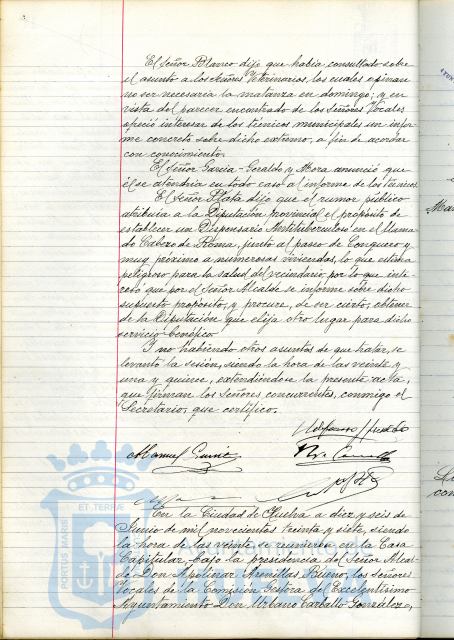 El Señor Blanco dijo que había consultado sobre
el asunto a los Señores Veterinarios, los cuales opinan
no ser necesaria la matanza en domingo; y en
vista del parecer encontrado de los Señores Vocales
ofreció interesar de los técnicos municipales un infor-
me concreto sobre dicho extremo, a fin de acordar
con conocimiento.
El Señor García-Geraldo y Mora anunció que
él se atendría en todo caso al informe de los técnicos.
El Señor Plata dijo que el rumor público
atribuía a la Diputación provincial el propósito de
establecer un Dispensario Antituberculoso en el llama-
do Cabezo de Roma, junto al paseo de Conquero y
muy próximo a numerosas viviendas, lo que estima
peligroso para la salud del vecindario por lo que inte-
resó que por el Señor Alcalde se informe sobre dicho
supuesto propósito, y procure, de ser cierto, obtener
de la Diputación que elija otro lugar para dicho
servicio benéfico.
Y no habiendo otros asuntos de que tratar, se
levantó la sesión, siendo la hora de las veinte y
una y quince, extendiéndose la presente acta,
que firman los Señores concurrentes, conmigo el
Secretario, que certifico.
Manuel
En la Ciudad de Huelva a diez y seis de
Junio de mil novecientos treinta y siete, siendo
la hora de las veinte, se reunieron en la Casa
Capitular, bajo la presidencia del Señor Alcal-
de Don Apolinar Arenillas Bueno, los señores
Vocales de la Comisión Gestora del Excelentísimo
Ayuntamiento Don Urbano Carballo González,
PORTUS MARIS
ET TERRAE